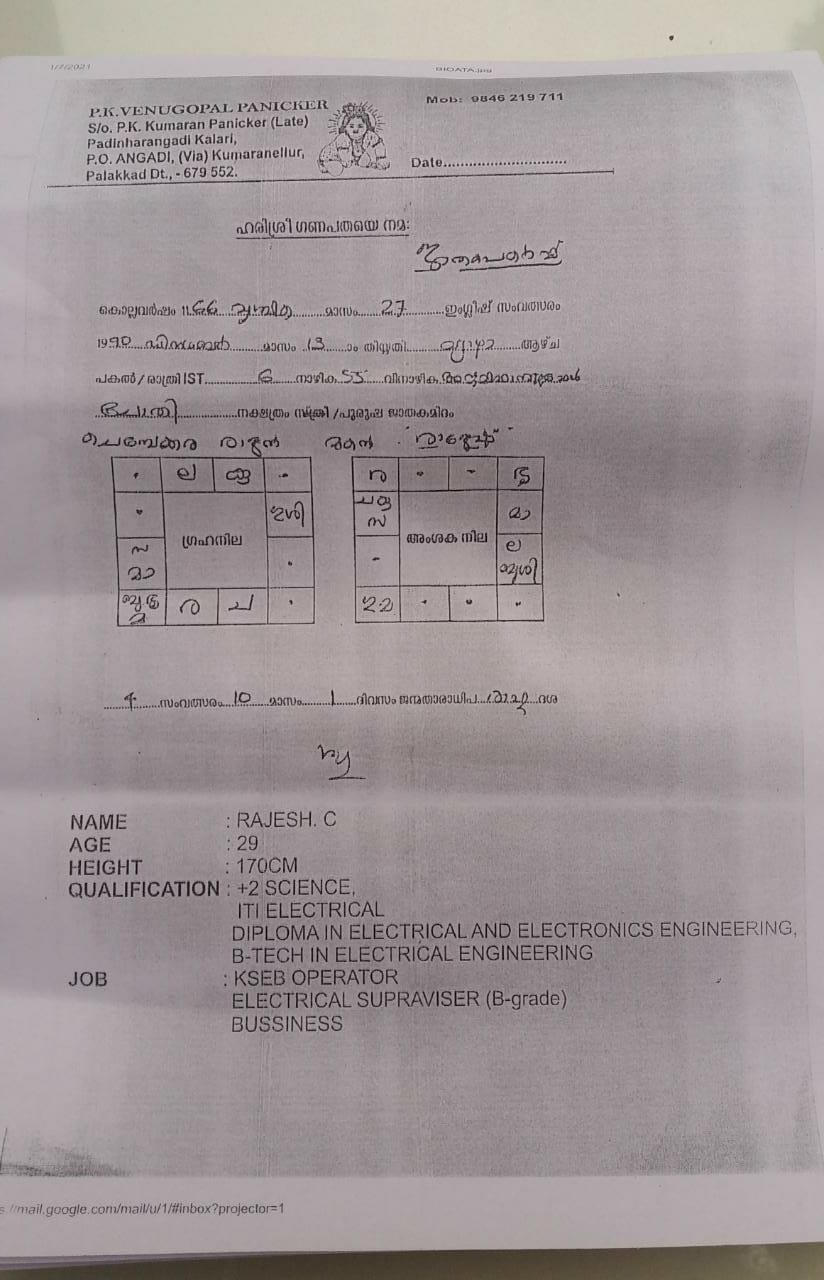 1/7/2021
BIODATA.jpg
P.K.VENUGOPAL PANICKER
Mob: 9846 219 711
S/o. P.K. Kumaran Panicker (Late)
Padinharangadi Kalari,
P.O. ANGADI, (Via) Kumaranellur,
Palakkad Dt., - 679 552.
Date............................
ഹരിശ്രീ ഗണപതയെ നമഃ
കൊല്ലവർഷം 1166 വൃശ്ചിക മാസം 27 ഇംഗ്ലീഷ് സംവത്സരം
1990 ഡിസംബർ മാസം 13 ാം തിയ്യതി വ്യാഴം ആഴ്ച
പകൽ / രാത്രി IST 6 നാഴിക 55 വിനാഴിക
ചോതി നക്ഷത്രം സ്ത്രീ / പുരുഷ ജാതകമിദം
രാജൻ മകൻ രാജേഷ്
ല
ഗ്രഹനില
സ
മാ
ര
അംശക നില
മാ
സ
ല
4 സംവത്സരം 10 മാസം 1 ദിവസം ജന്മതാരാധിപ ദശ
NAME : RAJESH. C
AGE : 29
HEIGHT : 170CM
QUALIFICATION : +2 SCIENCE,
ITI ELECTRICAL
DIPLOMA IN ELECTRICAL AND ELECTRONICS ENGINEERING,
B-TECH IN ELECTRICAL ENGINEERING
JOB : KSEB OPERATOR
ELECTRICAL SUPRAVISER (B-grade)
BUSSINESS
s://mail.google.com/mail/u/1/#inbox?projector=1